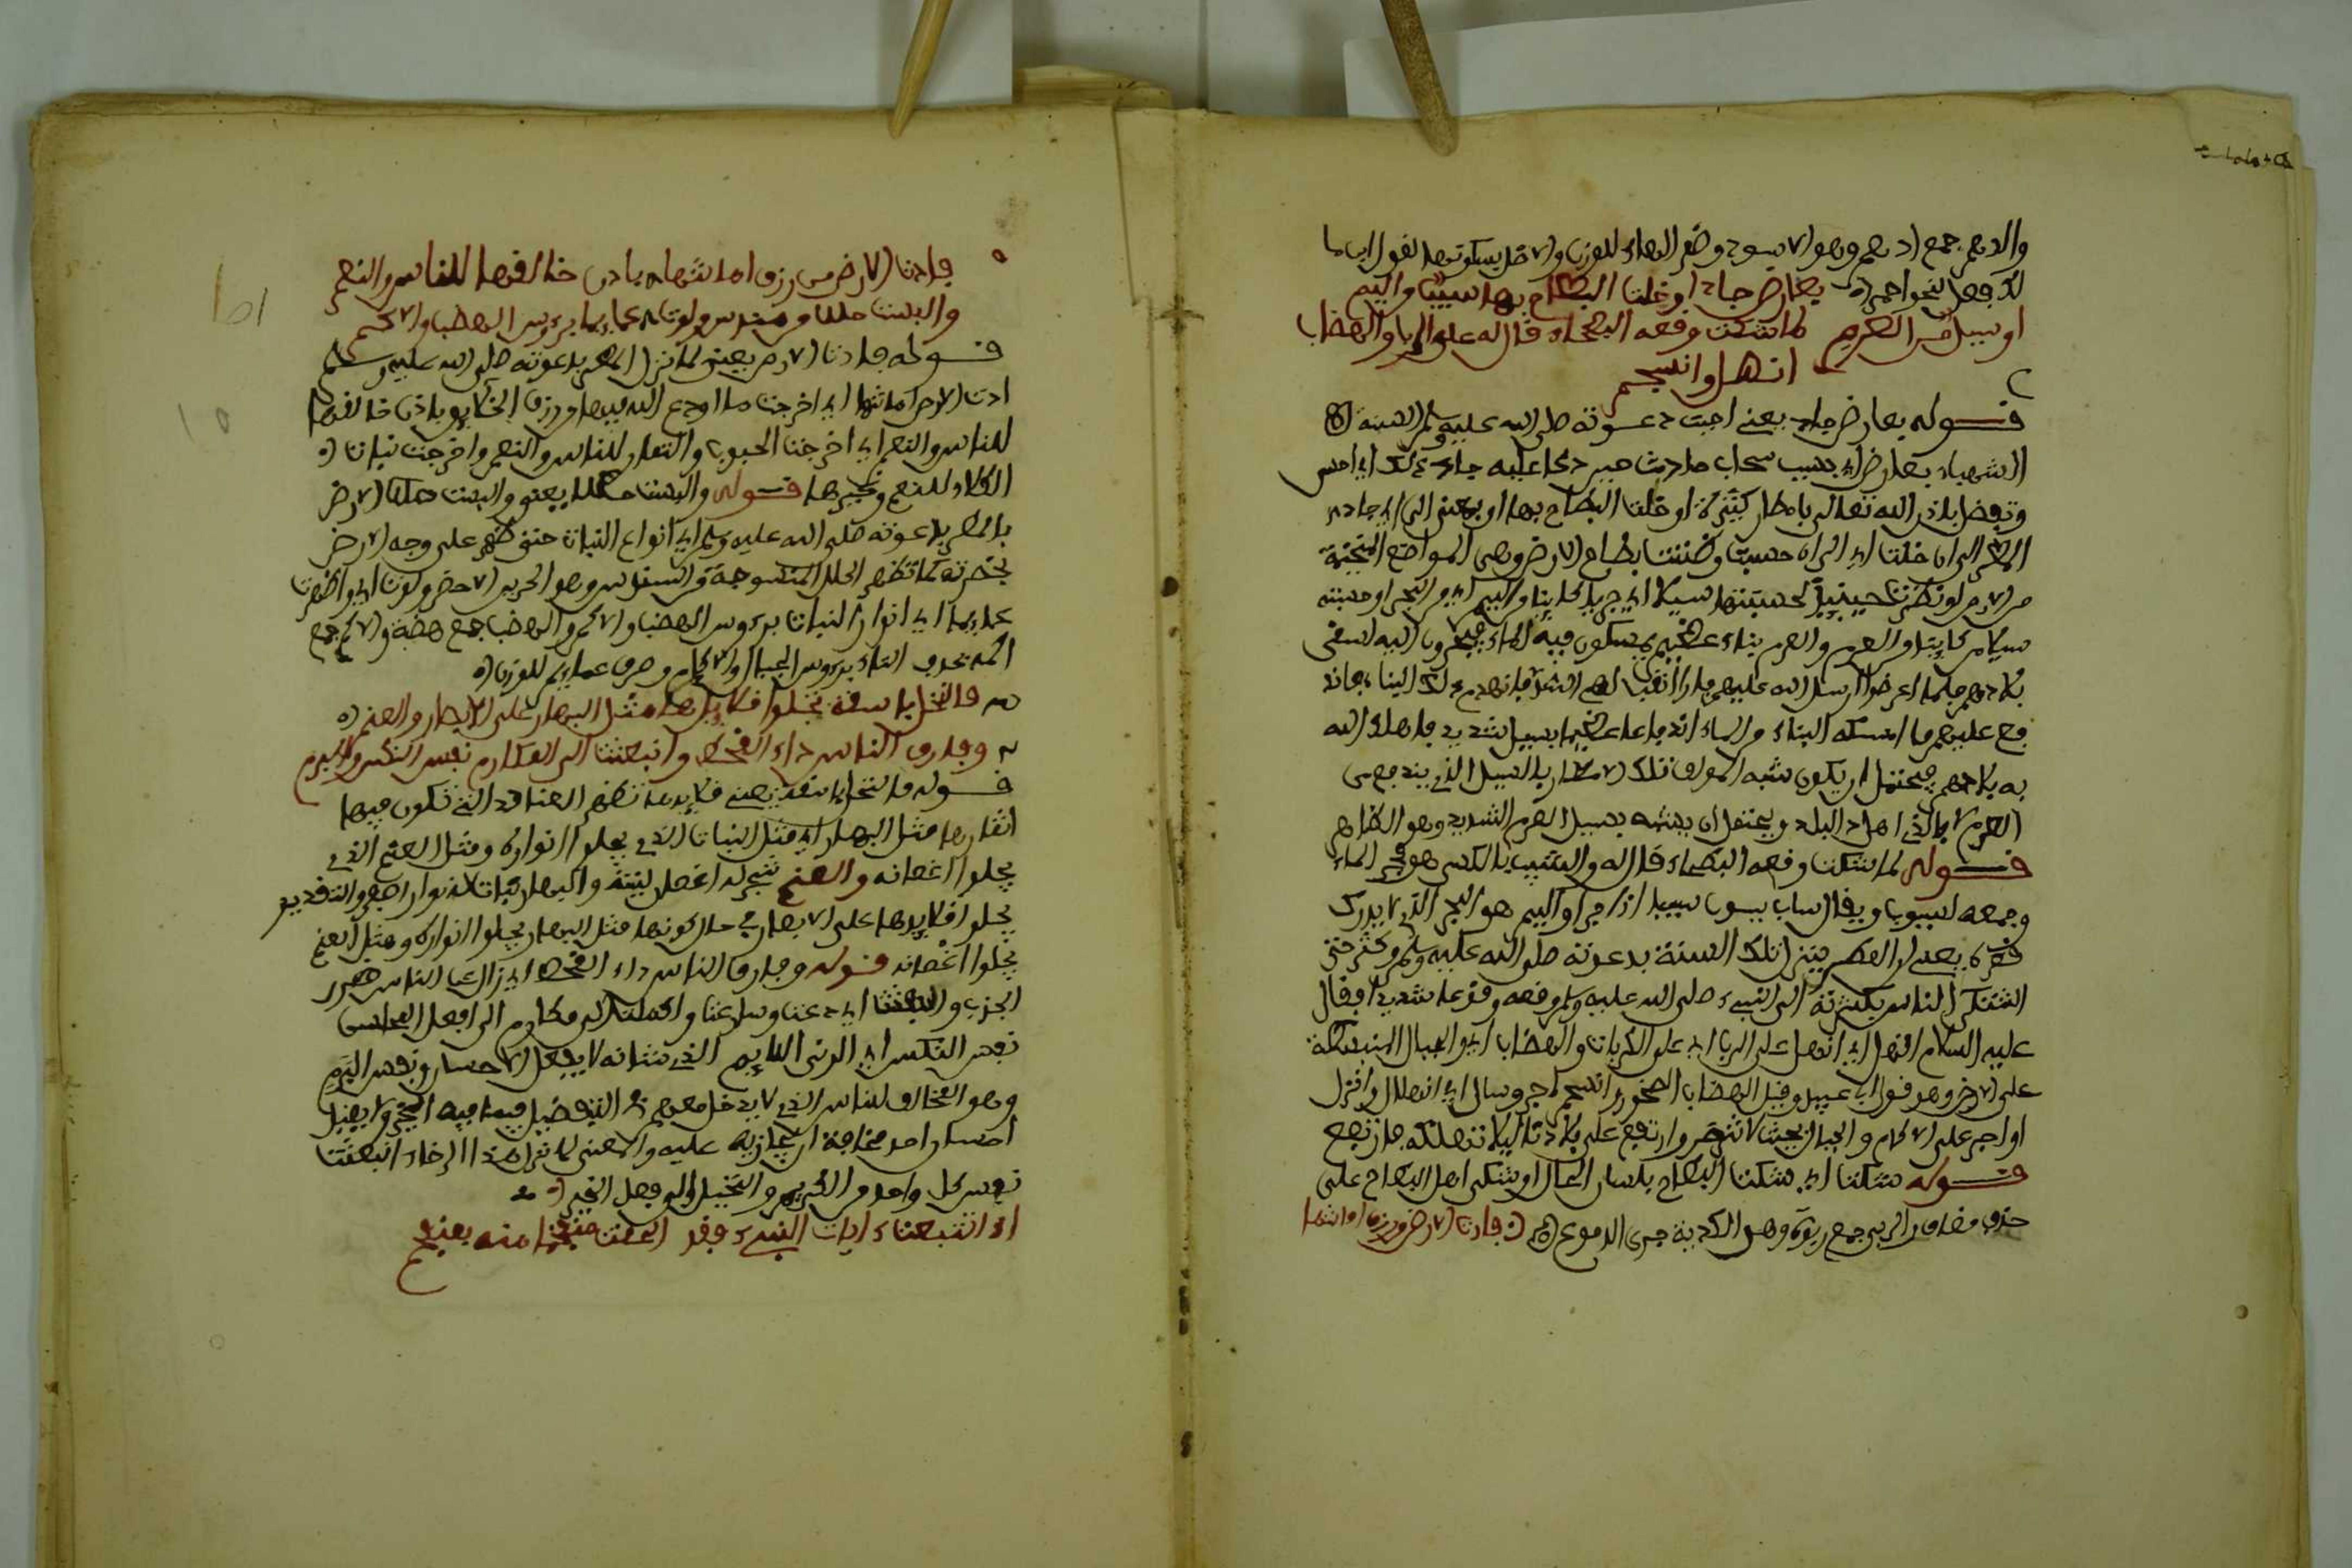 والدهم جمع ادهم وهو الاسود وضم الهاء للوزن والاصل سكونها لقول ابن ما
لك فعل لنحو احمر
بعارض جاد او خلت البطاح بها سيبا من اليم
او سيل من العرم لما شكت وقعه البطحاء قال له على الربا والهضاب
انهل وانسجم
قوله بعارض جاد يعني احيت دعوته صلى الله عليه وسلم السنة
الشهباء بعارض اي بسبب سحاب حادث حين دعا عليه جاد ذلك اي امس
وتفضل باذن الله تعالى بامطار كثيرة او خلت البطاح بها او بمعنى الى اي جاد
المطر الى ان خلت اي الى ان حسبت وظننت بطاح الارض وهي المواضع المنخفضة
من الارض لو نظرت حينئذ لحسبتها سيلا اي جريا كاينا من اليم اي من البحر او حسبته
سيلا من كاينا من العرم والعرم بناء عظيم يمسكون فيه الماء يحتجون اليه لسقي
بلادهم فلما اعرضوا ارسل الله عليهم فارا نقب لهم السد فانهدم ذلك البناء فاند
فع عليهم ما امسكه البناء من الماء اندفاعا عظيما بسيل شديد فاهلك الله
به بلادهم فيحتمل ان يكون شبه المولف تلك الامطار بالسيل الذي يندفع من
العرم الذي اهلك البلد ويحتمل ان يشبه بسيل العرم الشديد وهو الظاهر
قوله لما شكت وقعه البطحاء قال له والسيب بالكسر هو مجرى الماء
وجمعه سيوب ويقال ساب يسوب سيبا اذا جرا واليم هو البحر الذي لا يدرك
قعره يعني ان المطر ينزل تلك السنة بدعوته صلى الله عليه وسلم وكثر حتى
اشتكى الناس بكثرته الى النبيء صلى الله عليه وسلم وقعه وقوعا شديدا فقال
عليه السلام انهل اي انهل على الربا اي على الكريات والهضاب اي والجبال المنبسطة
على الارض وهو قول ابي عبيد وقيل الهضاب الصخور وانسجم اجر وسال اي انهلال وانزل
او اجر على الاكام والجبال بحيث لا تضر وارتفع على بلادنا ليلا تهلكه فارتفع
قوله شكت اي شكت البطاح بلسان الحال او شكى اهل البطاح على
حذف مضاف والربى جمع ربوة وهي الكدية جرى الدموع فادت الارض من رزق امانتها
فادت الارض من رزق امانتها باذن خالقها للناس والنعم
والبست حللا من سندس ولوت عمايما برءوس الهضب والاكم
قوله فادت الارض يعني لما نزل المطر بدعوته صلى الله عليه وسلم
ادت الارض امانتها اي اخرجت ما اودع الله فيها من رزق الخلايق باذن خالقها
للناس والنعم اي اخرجت الحبوب والثمار للناس والنعم واخرجت نباتا
الكلاء للنعم وغيرها قوله والبست حللا يعني والبست حللا الارض
بالمطر بدعوته صلى الله عليه وسلم اي انواع النبات حتى ظهر على وجه الارض
بخضرته كما تظهر الحلل المنسوجة من السندس وهو الحرير الاخضر ولوت اي واظهرت
عمايما اي انوار النبات برءوس الهضب والاكم والهضب جمع هضبة والاكم جمع
اكمة بحذف التاء برءوس الجبال والاكام وصرف عمايم للوزن
فالنخل باسقة تجلوا قلايدها مثل البهار على الابصار والعنم
وفارق الناس داء القحط وانبعثت الى المكارم نفس النكس والبرم
قوله فالنخل باسقة يعني قلايدها تظهر العناقد التي تكون فيها
اثمارها مثل البهار اي مثل النبات الذي يجلوا انواره ومثل العنم الذي
يجلوا اغصانه والعنم شجر له اغصان لينة والبهار نبات له نوار اصفر والتقدير
يجلوا قلايدها على الابصار في حال كونها مثل البهار يجلوا انواره ومثل العنم
يجلوا اغصانه قوله وفارق الناس داء القحط اي زال عن الناس ضرر
الجدب وانبعثت اي دعت وسارعت واقبلت الى مكارم الى افعل المحاسن
نفس النكس اي الدني اللايم الذي شانه لا يفعل الاحسان ونفس البرم
وهو المخالف للناس الذي لا يدخل معهم التفضيل فيما فيه الخير ولا يفعل
احسان احد مخافة ان يجازيه عليه والمعنى لما نزل هذا الرخاء انبعثت
نفس كل واحد من الكريم والبخيل الى فعل الخير
اذا تتبعت ءايات النبيء فقد الحقت منفخما منه بمنفخم